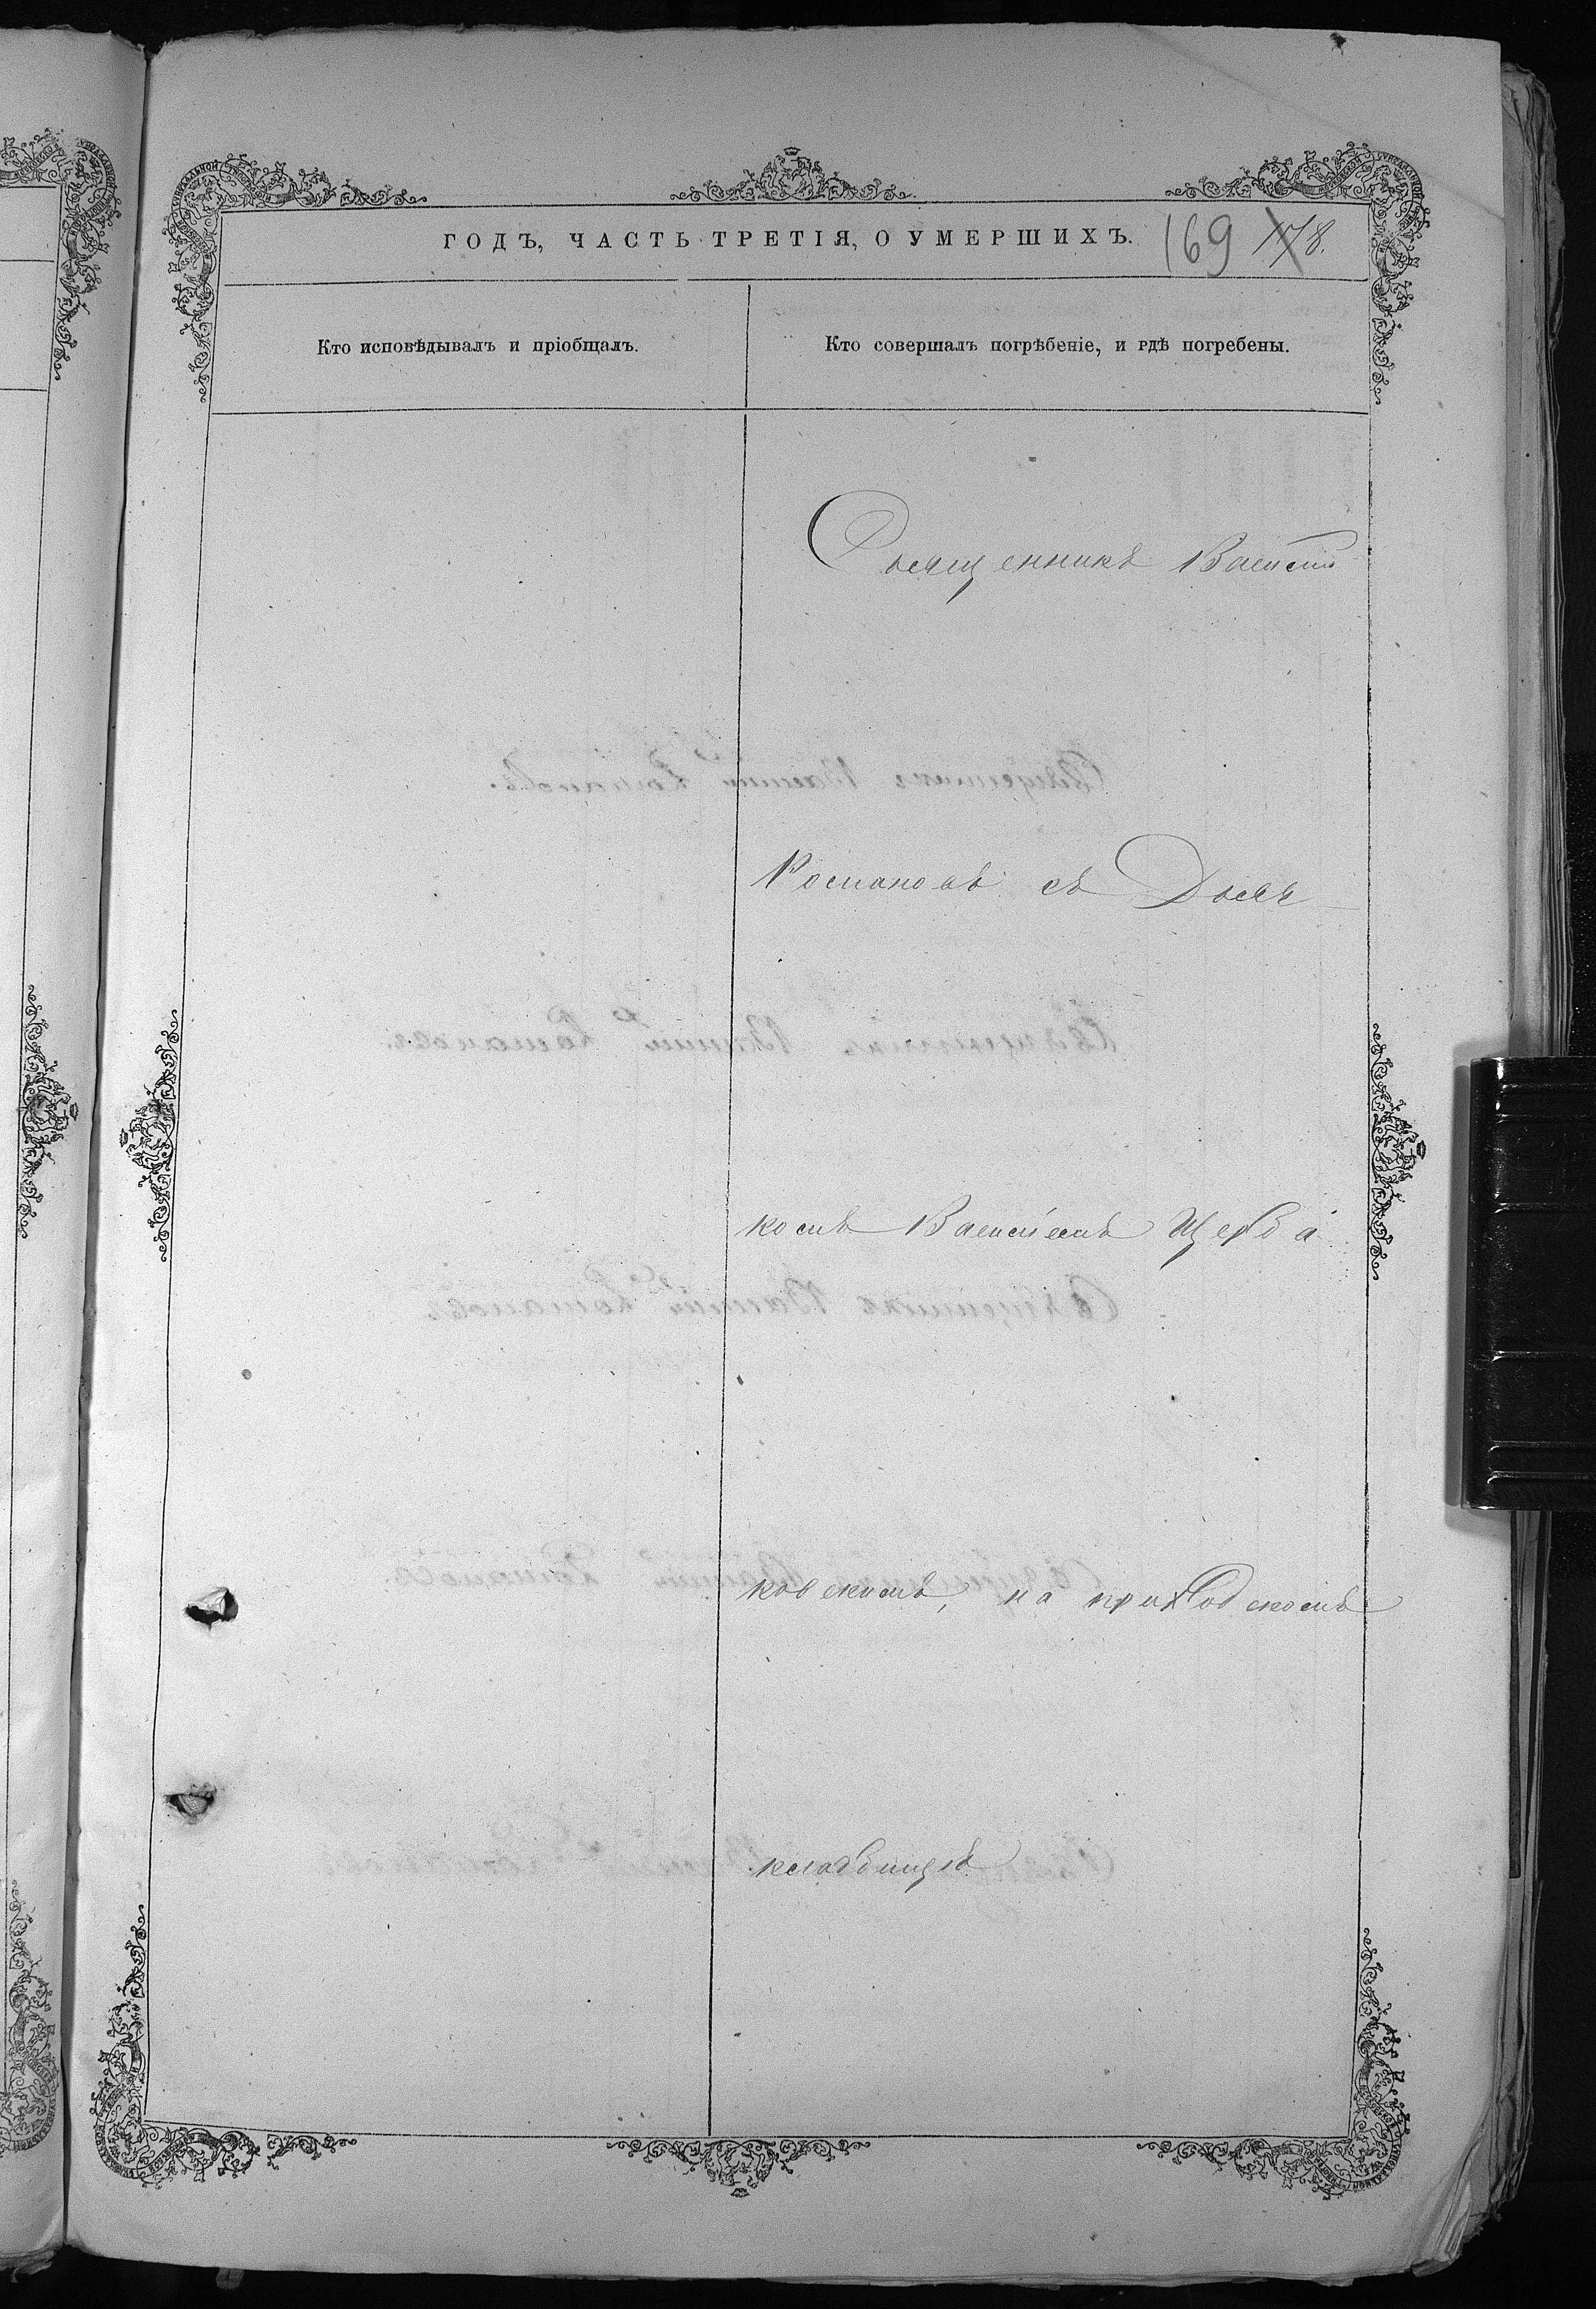 ГОДЪ, ЧАСТЬ ТРЕТІЯ, О УМЕРШИХЪ. 169 178.
Кто исповѣдывалъ и пріобщалъ.
Кто совершалъ погрѣбеніе, и гдѣ погребены.
Священникъ Василій
Романовъ съ Дьяч
комъ Василіемъ Щерба
ковскимъ, на приходскомъ
кладбищѣ